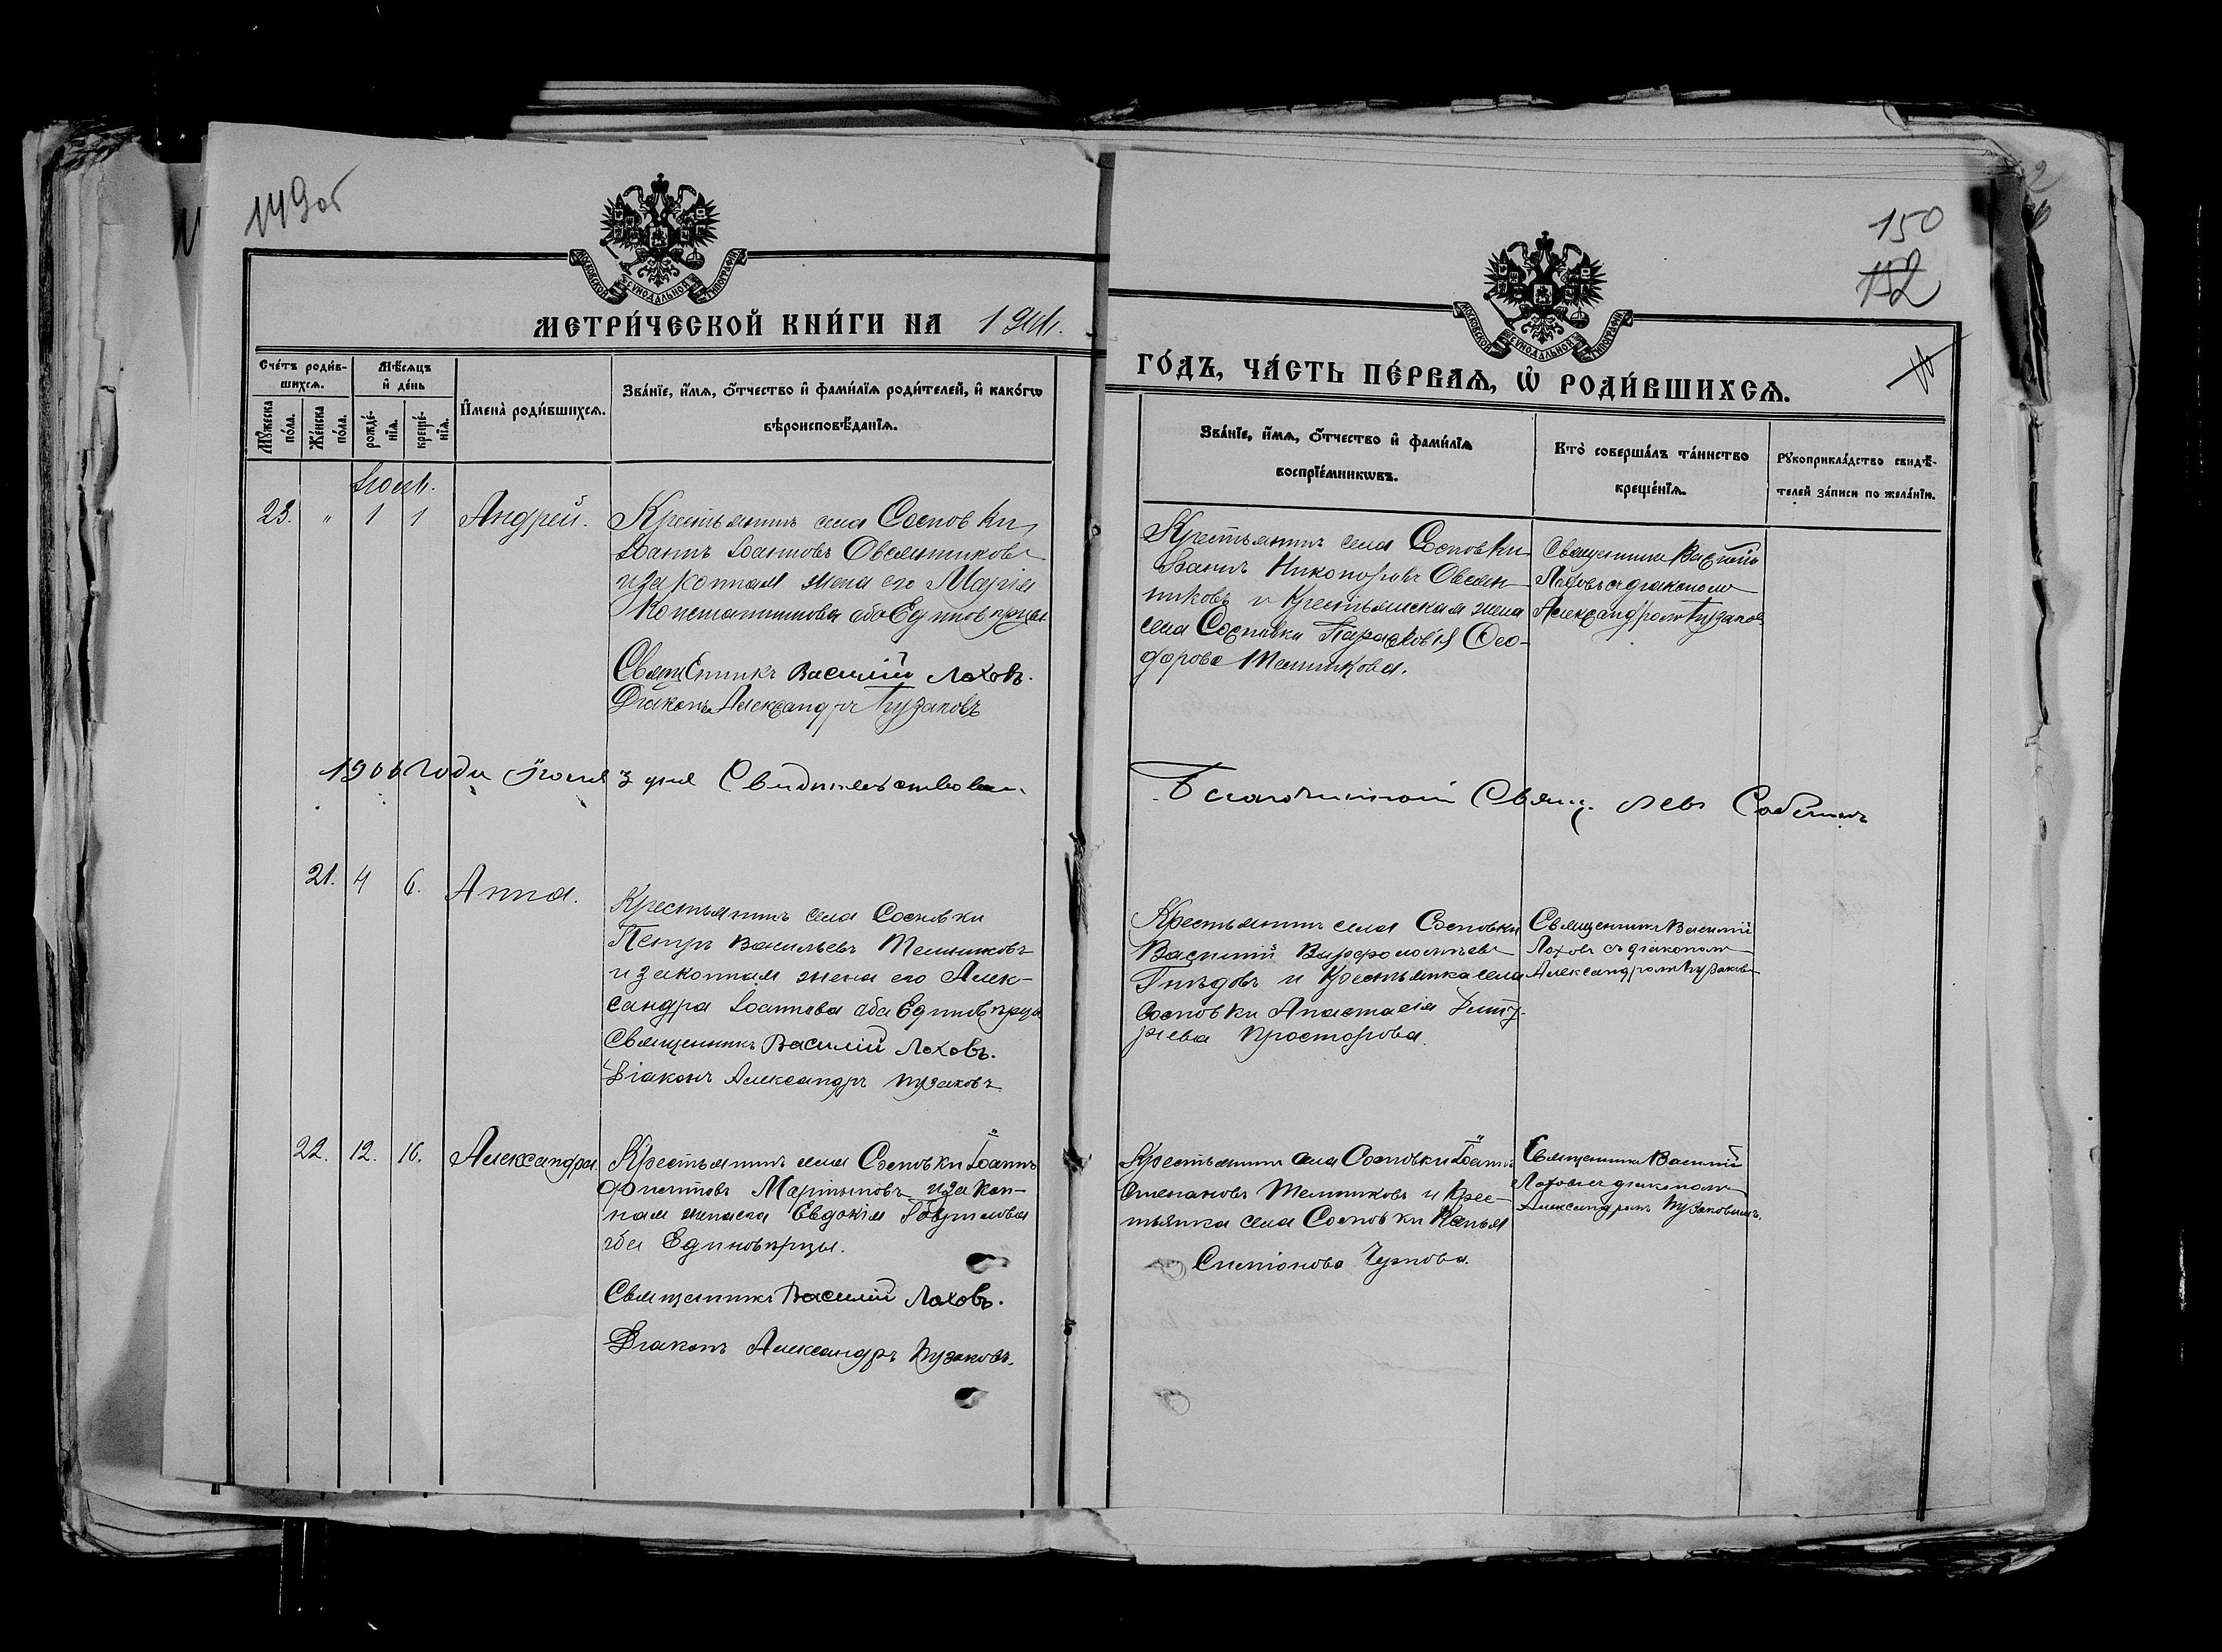 149об
МОСКОВСКОЙ СѴНОДАЛЬНОЙ ТИПОГРАФІИ
МЕТРИ́ЧЕСКОЙ КНИ́ГИ НА
Сче́тъ роди́в-
шихся.
Мѣ́сяцъ
и҆ де́нь
И҆мена̀ роди́вшихся.
Зва́нїе, и҆́мя, ѻ҆́тчество и҆ фами́лїя роди́телей, и҆ како́гѡ
вѣроисповѣ́данїя.
Мꙋ́жеска
по́ла.
Же́нска
по́ла.
рожде́-
нїя.
креще́-
нїя.
23. " 1 1 Андрей.
Крестьянинъ села Сосновки
Іоаннъ Іоанновъ Овсянниковъ
и законная жена его Марія
Константинова оба Единовѣрцы
Священникъ Василій Лоховъ.
Діаконъ Александръ Пузаковъ
1906 года Іюля 3 дня Свидѣтельствовалъ
21. 4 6. Анна.
Крестьянинъ села Сосновки
Петръ Васильевъ Мельниковъ
и законная жена его Алек-
сандра Іоаннова оба Единовѣрцы
Священникъ Василій Лоховъ.
Діаконъ Александръ Пузаковъ
22. 12. 16. Александра.
Крестьянинъ села Сосновки Іоаннъ
Мартыновъ и закон-
ная жена его Евдокія Гаврилова
оба Единовѣрцы.
Священникъ Василій Лоховъ.
Діаконъ Александръ Пузаковъ.
150
152
МОСКОВСКОЙ СѴНОДАЛЬНОЙ ТИПОГРАФІИ
ГО́ДЪ, ЧА́СТЬ ПЕ́РВАЯ, Ѡ҆ РОДИ́ВШИХСЯ.
Зва́нїе, и҆́мя, ѻ҆́тчество и҆ фами́лїя
воспрїе́мникѡвъ.
Кто̀ соверша́лъ та́инство
креще́нїя.
Рꙋкоприкла́дство свидѣ́-
телей за́писи по жела́нїю.
Крестьянинъ села Сосновки
Іоаннъ Никоноровъ Овсян-
никовъ и Крестьянская жена
села Сосновки Парасковія Ѳео-
дорова Мельникова.
Священникъ Василій
Лоховъ съ діакономъ
Александромъ Пузаков
Благочинный Свящ. Левъ
Крестьянинъ села Сосновки
Василій Варфоломѣевъ
Гнѣдовъ и Крестьянка села
Сосновки Анастасія Димит-
ріева Просторова
Священникъ Василій
Лоховъ съ діакономъ
Александромъ Пузаков
Крестьянинъ села Сосновки Іоаннъ
Степановъ Мельниковъ и Крес-
тьянка села Сосновки
Чернова.
Священникъ Василій
Лоховъ съ діакономъ
Александромъ Пузаковымъ.